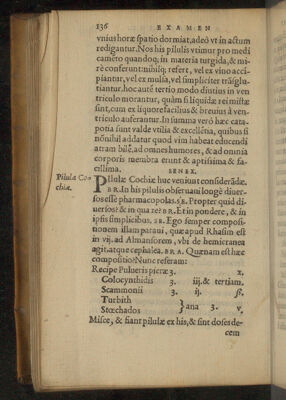 136 EXAMEN
vnius horæ spatio dormiat, adeò vt in actum
redigantur. Nos his pilulis vtimur pro medi
camēto quandoq; in materia turgida, & mi-
rè conferunt: nihilq; refert, vel ex vino acci
piantur, vel ex mulsa, vel simpliciter trāsglu-
tiantur. hoc autē tertio modo diutius in ven
triculo morantur, quàm si liquidæ rei mistæ
sint, cum ex liquore facilius & breuius à ven-
triculo auferantur. In summa verò hæc cata-
potia sunt valde vtilia & excellētia, quibus si
nōnihil addatur quod vim habeat educendi
atram bilē, ad omnes humores, & ad omnia
corporis membra erunt & aptissima & fa-
cillima.
SENEX.
Pilulæ Co
chiæ.
Pilulæ Cochiæ huc veniunt considerādæ.
BR. In his pilulis obseruaui longè diuer-
sos esse pharmacopolas. SE. Propter quid di-
uersos? & in qua re? BR. Et in pondere, & in
ipsis simplicibus. SE. Ego semper composi-
tionem illam paraui, quæ apud Rhasim est
in vij. ad Almansorem, vbi de hemicranea
agit, atque cephalea. BRA. Quænam est hæc
compositio? Nunc referam:
Recipe Pulueris picræ 3. x.
Colocynthidis 3. iij. & tertiam.
Scammonii 3. ij. ß.
Turbith
Stœchados } ana 3. v.
Misce, & fiant pilulæ ex his, & sint doses de-
cem